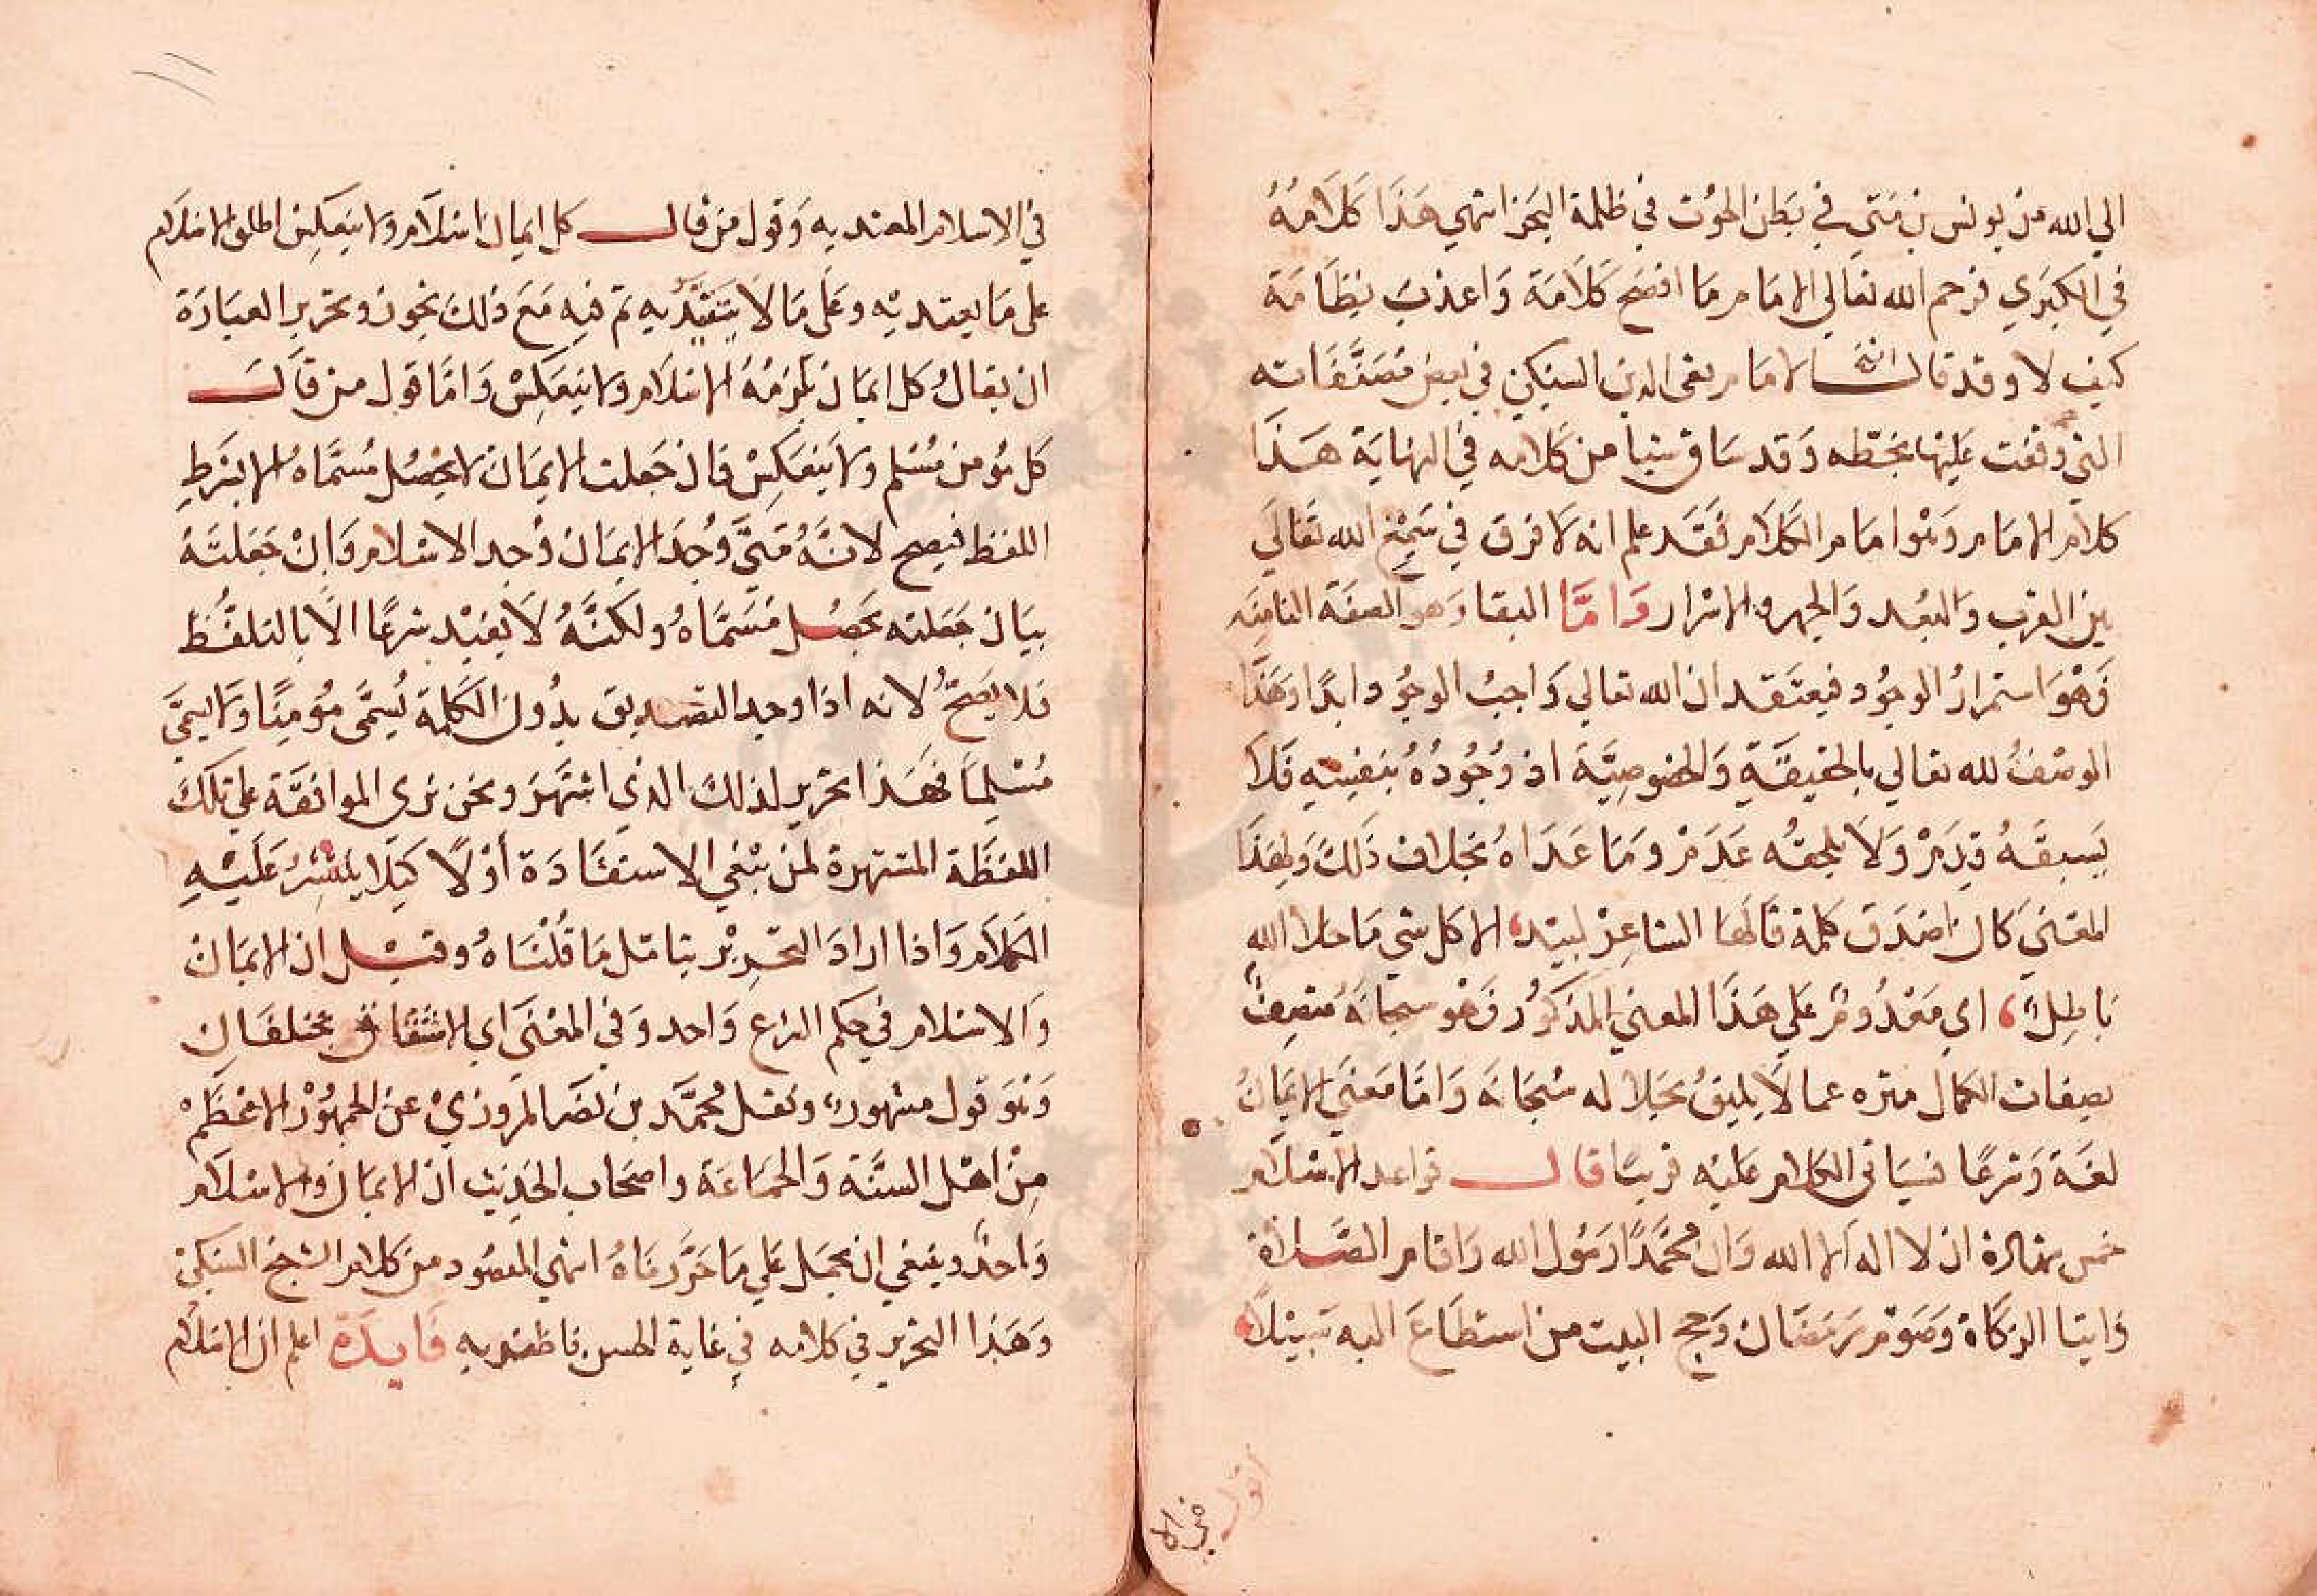 الي الله من يونس بن متي في بطن الحوت في ظلمة البحر انتهي هذا كلامه
في الكبري فرحم الله تعالي الامام ما افصح كلامه واعذب نظامه
كيف لا وقد قال الشيخ الامام تقي الدين السبكي في بعض مصنفاته
التي وقفت عليها بخطه وقد ساق شيا من كلامه في النهاية هذا
كلام الامام وهو امام الكلام فقد علم انه لا فرق في سمع الله تعالي
بين القرب والبعد والجهر والاسرار واما البقا وهو الصفة الثامنة
فهو استمرار الوجود فيعتقد ان الله تعالي واجب الوجود ابدا وهذا
الوصف لله تعالي بالحقيقة والخصوصية اذ وجوده بنفسه فلا
يسبقه قدم ولا يلحقه عدم وما عداه بخلاف ذلك ولهذا
المعني كان اصدق كلمة قالها الشاعر لبيد، الا كل شي ما خلا الله
باطل، اي معدوم علي هذا المعني المذكور فهو سبحانه متصف
بصفات الكمال منزه عما لا يليق بجلاله سبحانه واما معني الايمان
لغة وشرعا فسياتي الكلام عليه قريبا قال قواعد الاسلام
خمس شهادة ان لا اله الا الله وان محمدا رسول الله واقام الصلاة
وايتا الزكاة وصوم رمضان وحج البيت من استطاع اليه سبيلا
اقول
في الا
في الاسلام المعتد به وقول من قال كل ايمان اسلام ولا ينعكس اطلق الاسلام
علي ما يعتد به وعلي ما لا يتقيد به ثم فيه مع ذلك تجوز وتحرير العبارة
ان يقال كل ايمان يلزمه الاسلام ولا ينعكس واما قول من قال
كل مؤمن مسلم ولا ينعكس فان جعلت الايمان لا يحصل مسماه الا بشرط
اللفظ فيصح لانه متي وجد الايمان وجد الاسلام وان جعلته
بيان جعلته يحصل مسماه ولكنه لا يفيد شرعا الا بالتلفظ
فلا يصح لانه اذا وجد التصديق بدون الكلمة يسمي مؤمنا ولا يسمي
مسلما فهذا تحرير لذلك الذي اشتهر ونحن نري الموافقة علي تلك
اللفظة المشتهرة لمن ينبغي الاستفادة اولا كيلا يلتبس عليه
الكلام واذا اراد التحرير يتامل ما قلناه وقيل ان الايمان
والاسلام في حكم الشرع واحد وفي المعني اي الاشتقاق مختلفان
وهو قول مشهور ونقل محمد بن نصر المروزي عن الجمهور الاعظم
من اهل السنة والجماعة واصحاب الحديث ان الايمان والاسلام
واحد وينبغي ان يحمل علي ما حررناه انتهي المقصود من كلام الشيخ السبكي
وهذا التحرير في كلامه في غاية الحسن فاظفر به فايدة اعلم ان الاسلام